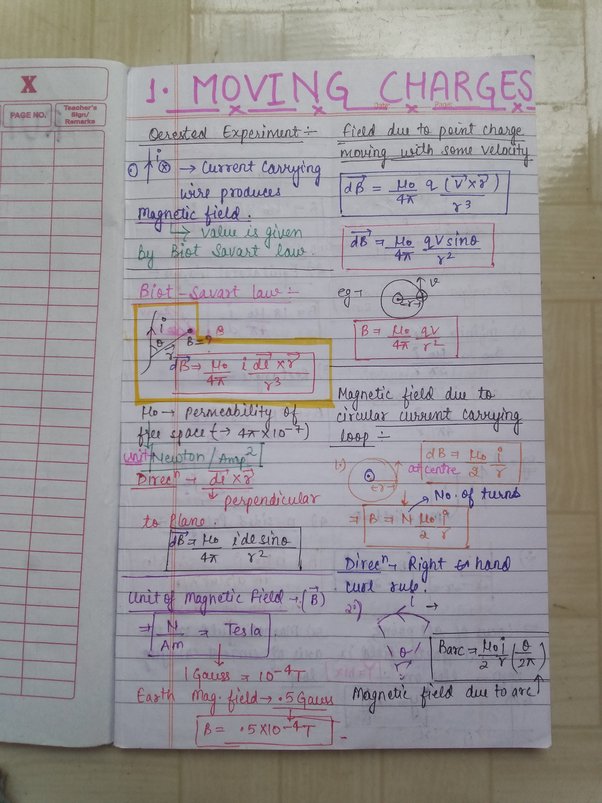 X
PAGE NO.
Teacher's
Sign/
Remarks
1. MOVING CHARGES
Oersted Experiment :-
i
→ Current carrying
wire produces
Magnetic field.
↳ value is given
By Biot Savart law.
Biot-Savart law :-
i
θ
r
B = ?
dB⃗ → μ₀/4π i dl⃗ × r⃗/r³
μ₀ → Permeability of
free space (→ 4π × 10⁻⁷)
unit Newton/Amp²
Direcⁿ → dl⃗ × r⃗
↳ perpendicular
to Plane.
dB⃗ = μ₀/4π idl sinθ/r²
Unit of Magnetic Field → (B⃗)
⇒ N/Am = Tesla
1 Gauss = 10⁻⁴T
Earth Mag. field → .5 Gauss
B = .5×10⁻⁴T
Field due to point charge
moving with some velocity
dB⃗ = μ₀/4π q (v⃗×r⃗)/r³
dB⃗ = μ₀/4π qv sinθ/r²
eg →
r
v
B = μ₀/4π qv/r²
Magnetic field due to
circular current carrying
loop :-
1.)
r
at centre
dB = μ₀/2 i/r
No. of turns
⇒ B = N μ₀/2 i/r
Direcⁿ → Right hand
curl rule.
2.)
i
θ
Barc = μ₀/2 i/r (θ/2π)
Magnetic field due to arc